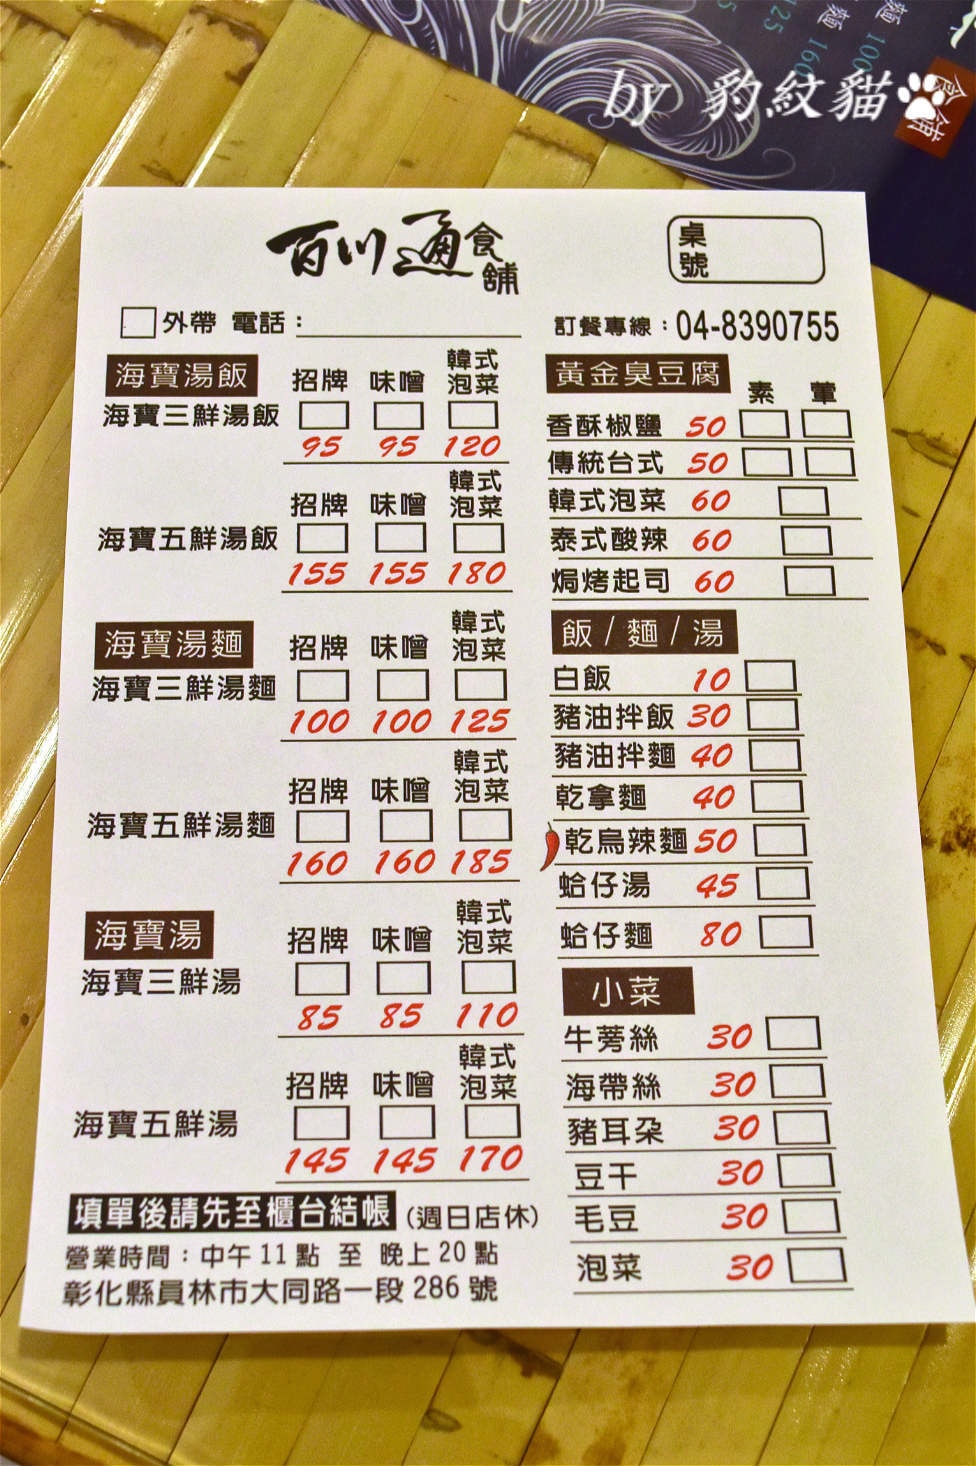 麵 100
麵 160
125
5
食鋪
by 豹紋貓
百川通食舖
桌號
外帶 電話：
訂餐專線：04-8390755
海寶湯飯
招牌 味噌 韓式泡菜
海寶三鮮湯飯
95 95 120
招牌 味噌 韓式泡菜
海寶五鮮湯飯
155 155 180
海寶湯麵
招牌 味噌 韓式泡菜
海寶三鮮湯麵
100 100 125
招牌 味噌 韓式泡菜
海寶五鮮湯麵
160 160 185
海寶湯
招牌 味噌 韓式泡菜
海寶三鮮湯
85 85 110
招牌 味噌 韓式泡菜
海寶五鮮湯
145 145 170
黃金臭豆腐
素 葷
香酥椒鹽 50
傳統台式 50
韓式泡菜 60
泰式酸辣 60
焗烤起司 60
飯/麵/湯
白飯 10
豬油拌飯 30
豬油拌麵 40
乾拿麵 40
乾烏辣麵 50
蛤仔湯 45
蛤仔麵 80
小菜
牛蒡絲 30
海帶絲 30
豬耳朵 30
豆干 30
毛豆 30
泡菜 30
填單後請先至櫃台結帳 (週日店休)
營業時間：中午 11 點 至 晚上 20 點
彰化縣員林市大同路一段 286 號